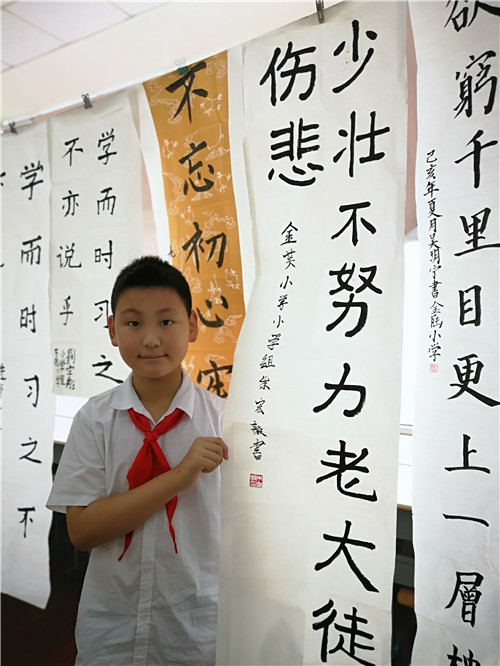 欲窮千里目更上一層樓
己亥年夏月吴明宇書金小学
少壮不努力老大徒
伤悲
金英小学小学组朱宏毅書
不忘初心
学而时习之
不亦说乎
学而时习之不